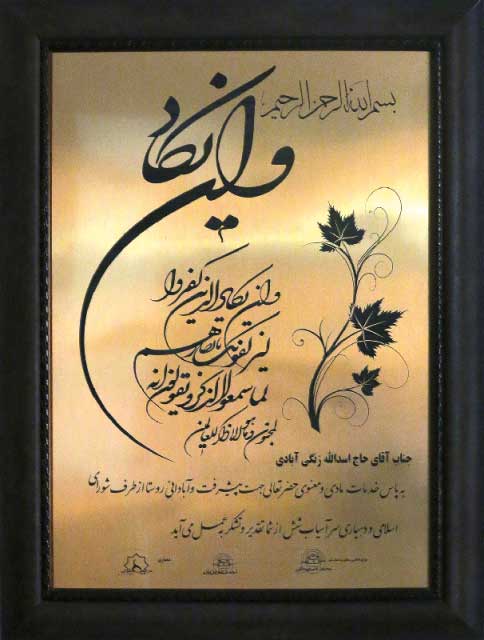 بسم الله الرحمن الرحیم
وان یکاد
وان یکاد الذین کفروا
لیزلقونک بابصارهم
لما سمعوا الذکر و یقولون انه
لمجنون و ما هو الا ذکر للعالمین
جناب آقای حاج اسدالله زنگی آبادی
به پاس خدمات مادی و معنوی حضرتعالی جهت پیشرفت و آبادانی روستا از طرف شورای
اسلامی و دهیاری سرآسیاب شش از شما تقدیر و تشکر به عمل می آید